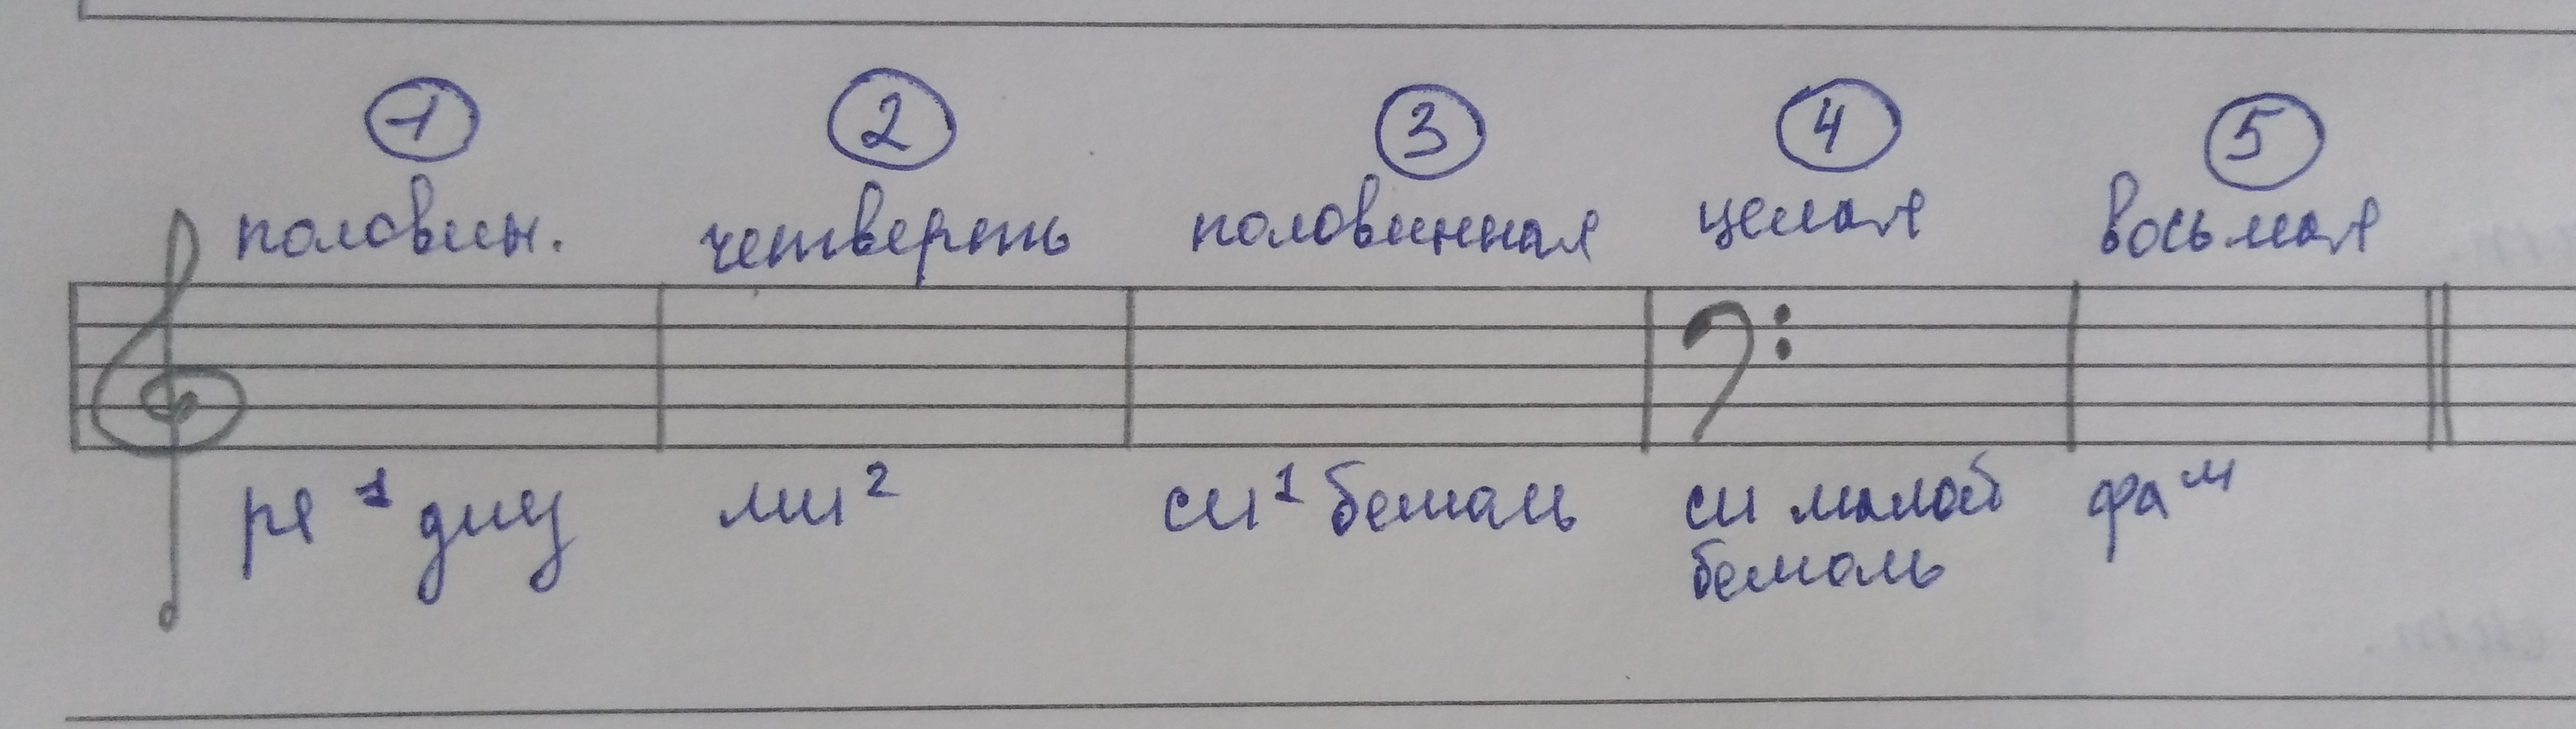 1 2 3 4 5
половин. четверть половинная целая восьмая
ре¹ диез ми² си¹ бемоль си малой фа ᵐ
бемоль